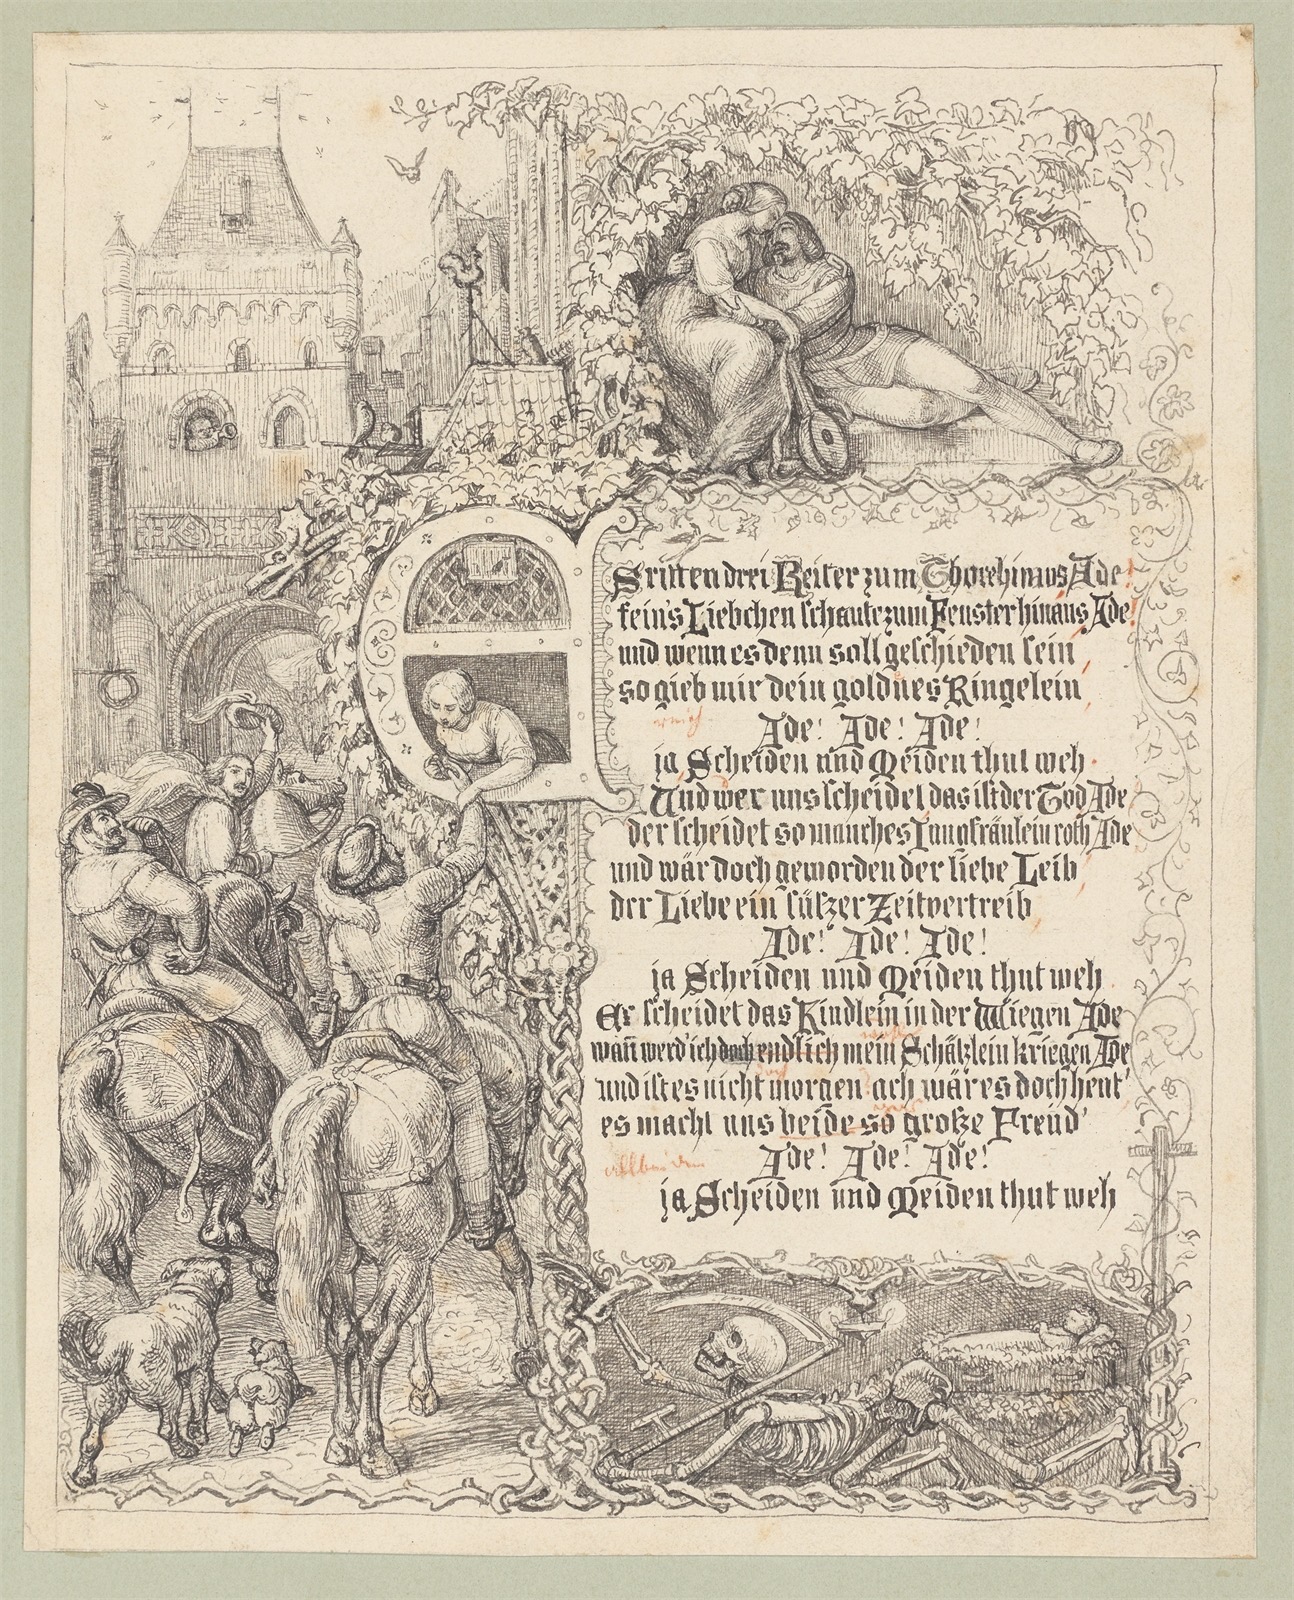 Es ritten drei Reiter zum Thore hinaus Ade!
fein's Liebchen schaute zum Fenster hinaus Ade!
und wenn es denn soll geschieden sein,
so gieb mir dein goldnes Ringelein,
reich
Ade! Ade! Ade!
ja Scheiden und Meiden thut weh.
Und wer uns scheidet das ist der Tod Ade
der scheidet so manches Jungfräulein roth Ade
und wär doch geworden der liebe Leib,
der Liebe ein süßzer Zeitvertreib
Ade! Ade! Ade!
ja Scheiden und Meiden thut weh.
Er scheidet das Kindlein in der Wiegen Ade
wañ werd' ich doch endlich mein Schätzlein kriegen Ade
doch
und ist es nicht morgen ach wär es doch heut'
es macht uns beide so große Freud'
allbeiden
Ade! Ade! Ade!
ja Scheiden und Meiden thut weh